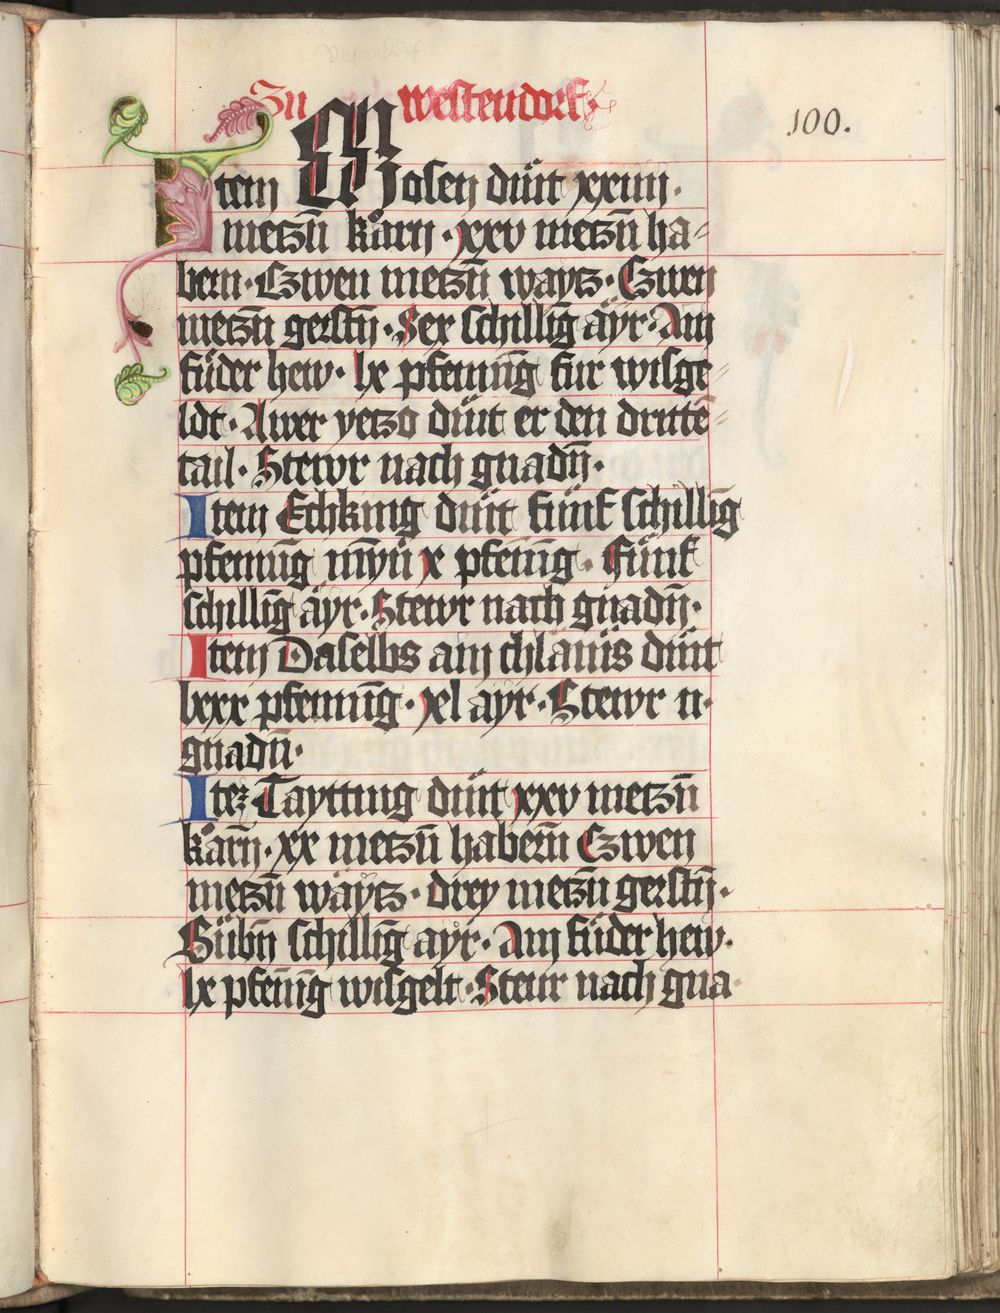 Zu westendorf
100.
Item Mosen diint xxiiii.
metzn̄ kărn . xxv metzn̄ ha-
bern . Czwen metzn̄ wayts . Czwen
metzn̄ gerstn̄ . Sex schillinḡ äyr . Ain
fůder hew . lx pfeninḡ für wisge-
ldt . Awer yetzo diint er den dritte-
tail . Stewr nach gnadn̄ .
Item Echking diint fünf schillinḡ
pfeninḡ mȳn̄ x pfeninḡ . Fünf
schillinḡ äyr . Stewr nach gnadn̄ .
Item Daselbs am chläuis diint
lxxx pfeninḡ . xl ayr . Stewr n .
gnadn̄ .
Itez Taytting diint xxv metzn̄
kărn̄ . xx metzn̄ habern̄ Czwen
metzn̄ wäyts . drey metzn̄ gerstn̄ .
Sübn̄ schillinḡ ayr . Ain fůder hew .
lx pfeninḡ wisgelt . Steur nach gna